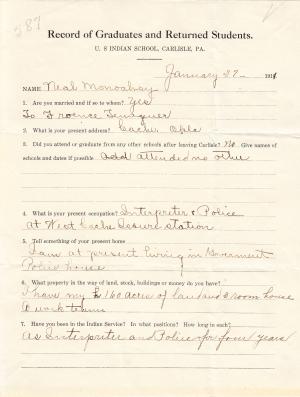 587
Record of Graduates and Returned Students.
U. S INDIAN SCHOOL, CARLISLE, PA.
January 27 - 1911
NAME, Neal Monoabay
1. Are you married and if so to whom? yes
To
2. What is your present address? Cache Okla
3. Did you attend or graduate from any other schools after leaving Carlisle? No. Give names
of schools and dates if possible. attended no other
4. What is your present occupation? Interpreter & Police
at West Cache station
5. Tell something of your present home
I am at present living in Government
Police house
6. What property in the way of land, stock, buildings or money do you have?
I have my 160 acres of land and 3 room house
work teams
7. Have you been in the Indian Service? In what positions? How long in each?
As Interpreter and Police for four years